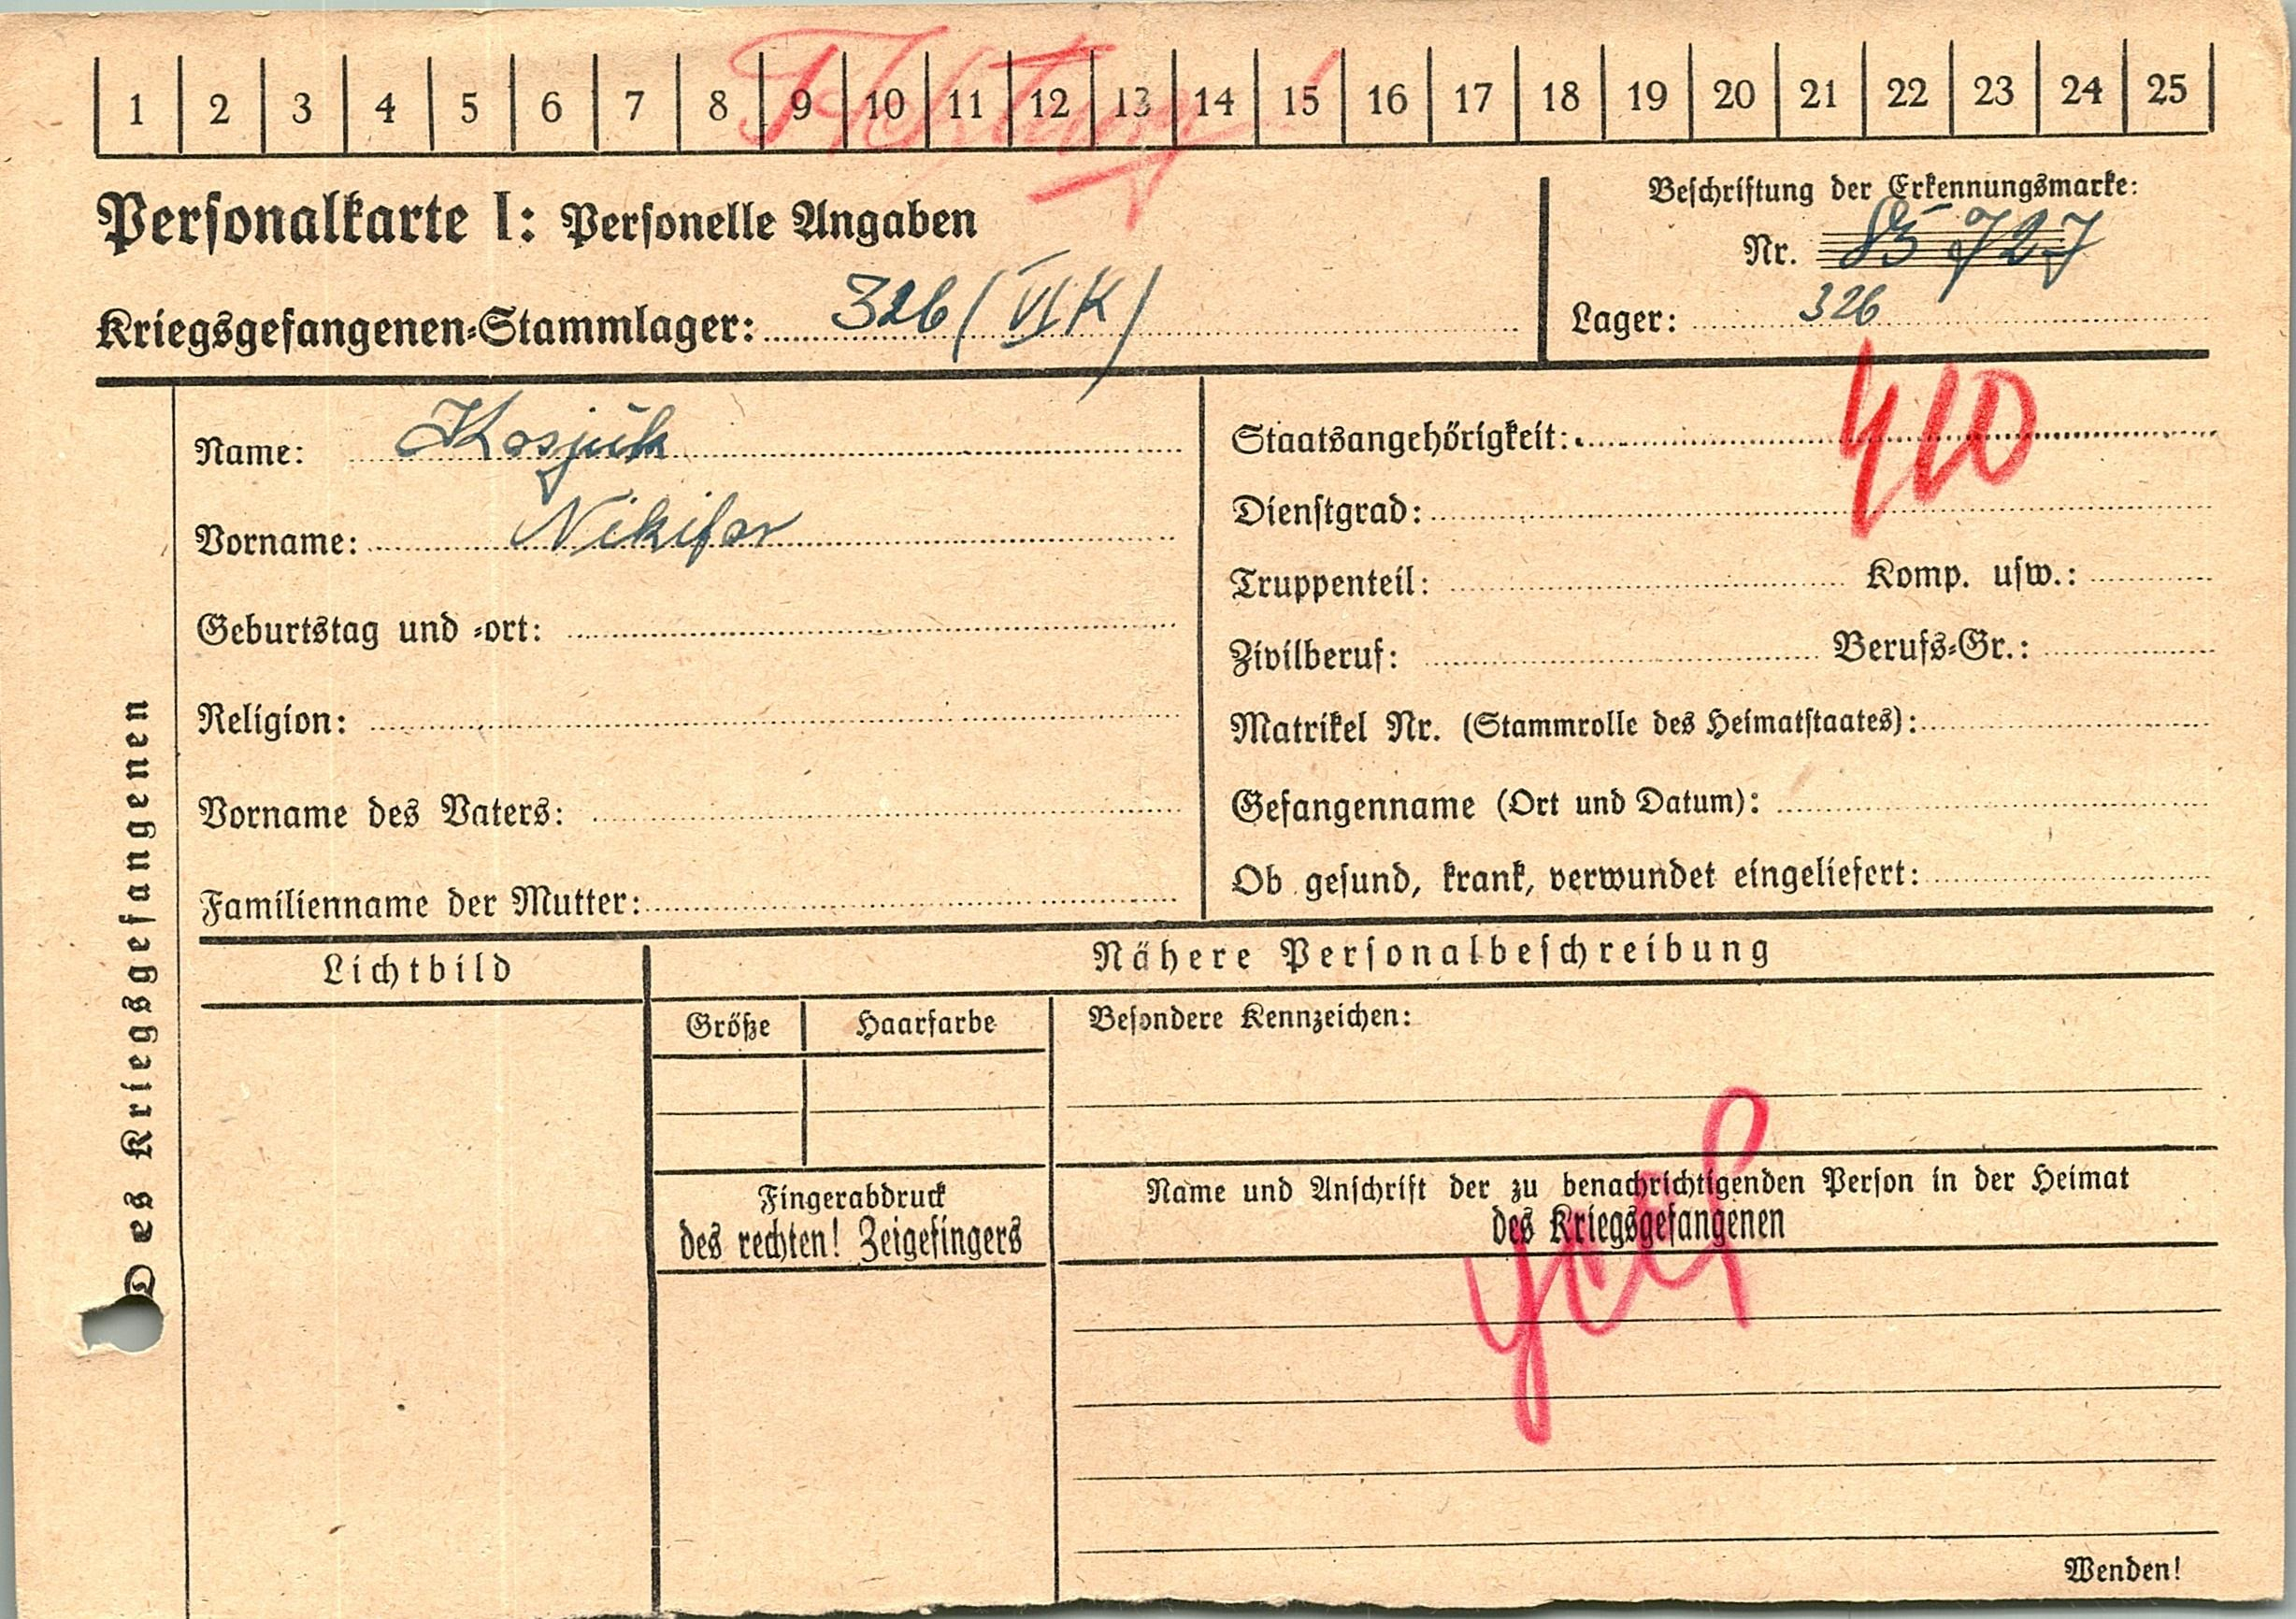 1 2 3 4 5 6 7 8 9 10 11 12 13 14 15 16 17 18 19 20 21 22 23 24 25
Achtung!
Personalkarte I: Personelle Angaben
Kriegsgefangenen-Stammlager: 326 (VI K)
Beschriftung der Erkennungsmarke:
Nr. 85 727
Lager: 326
Des Kriegsgefangenen
Name: Kosjuk
Vorname: Nikifor
Geburtstag und -ort:
Religion:
Vorname des Vaters:
Familienname der Mutter:
410
Staatsangehörigkeit:
Dienstgrad:
Truppenteil: Komp. usw.:
Zivilberuf: Berufs-Gr.:
Matrikel Nr. (Stammrolle des Heimatstaates):
Gefangenname (Ort und Datum):
Ob gesund, krank, verwundet eingeliefert:
Lichtbild
Nähere Personalbeschreibung
Größe Haarfarbe
Besondere Kennzeichen:
Fingerabdruck
des rechten! Zeigefingers
Name und Anschrift der zu benachrichtigenden Person in der Heimat
des Kriegsgefangenen
Wenden!